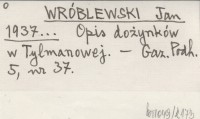 WRÓBLEWSKI Jan
1937... Opis dożynków
w Tylmanowej. – Gaz. Podh.
5, nr 37.